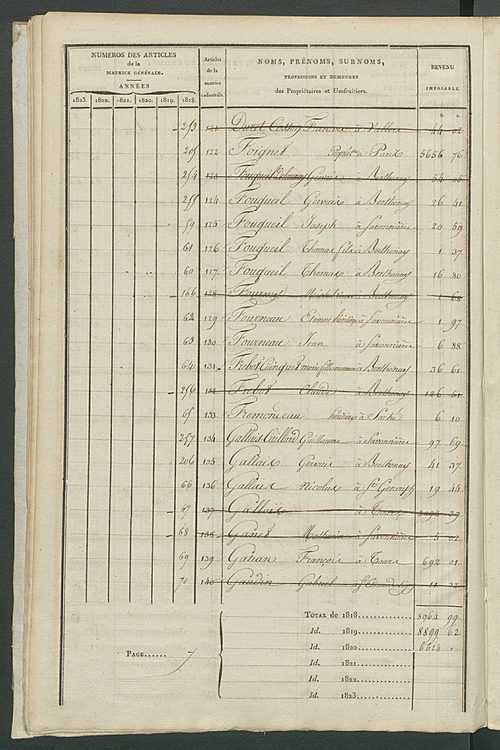 NUMÉROS DES ARTICLES
de la
MATRICE GÉNÉRALE.
ANNÉES
1823. 1822. 1821. 1820. 1819. 1818.
Articles
de la
matrice
cadastrale.
NOMS, PRÉNOMS, SURNOMS,
PROFESSIONS ET DEMEURES
des Propriétaires et Usufruitiers.
REVENU
IMPOSABLE.
fr. c.
253 121 François à 44 02
205 122 Foignet à Paris 5656 76
254 123 à Berthenay 54
255 124 Fouqueil Gervais à Berthenay 26 41
59 125 Fouqueil Joseph à Savonnière 20 59
61 126 Fouqueil Thomas fils à Berthenay 1 37
60 127 Fouqueil Thomas à Berthenay 16 80
166 128 à Berthenay 1 68
62 129 Fourneau Etienne à Savonnière 1 97
63 130 Fourneau Jean à Savonnière 6 88
64 131 Frebot à Berthenay 36 61
256 132 Frebot Claude à Berthenay 126 61
65 133 Fremondeau à Saché 6 10
257 134 Gallais Guillaume à Savonnière 97 69
206 135 Gallais Gervais à Berthenay 41 37
66 136 Gallais Nicolas à St Genouph 19 44
67 137 à 39
68 138 Ganet à Savonnière
69 139 Gatian François à Tours 692 01
70 140 Gaudin Gabriel 11 32
TOTAL de 1818 8964 99
Id. 1819 8899 62
Id. 1820 6624 "
Id. 1821
Id. 1822
Id. 1823
PAGE 7